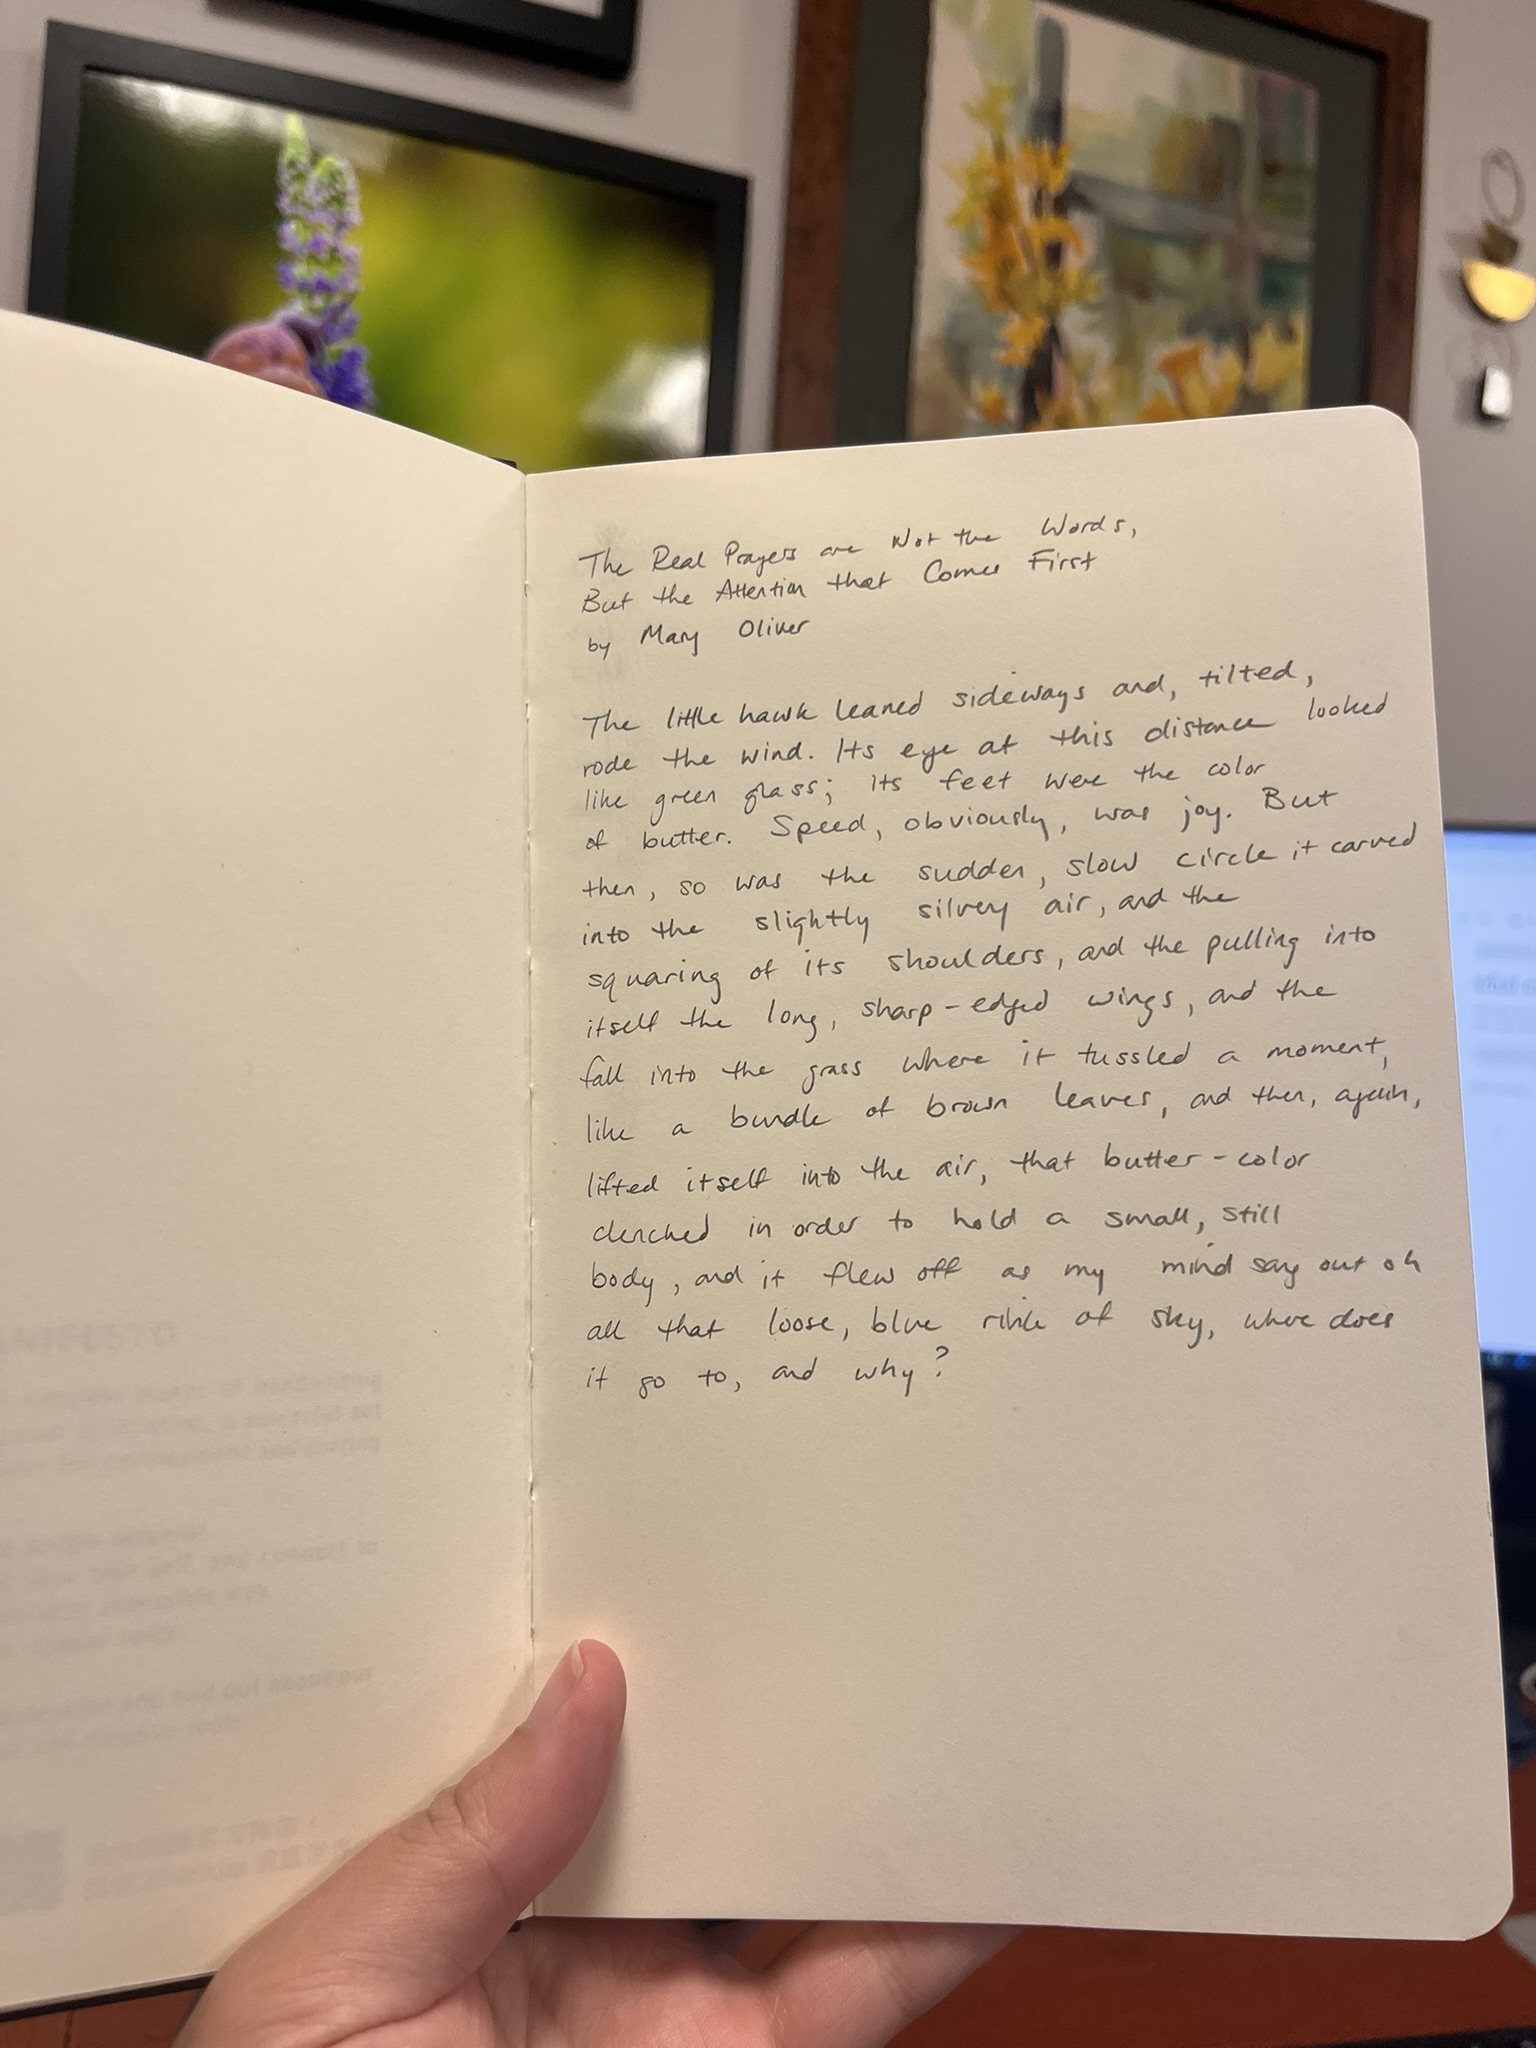 The Real Prayers are Not the Words,
But the Attention that Comes First
by Mary Oliver
The little hawk leaned sideways and, tilted,
rode the wind. Its eye at this distance looked
like green glass; its feet were the color
of butter. Speed, obviously, was joy. But
then, so was the sudden, slow circle it carved
into the slightly silvery air, and the
squaring of its shoulders, and the pulling into
itself the long, sharp-edged wings, and the
fall into the grass where it tussled a moment,
like a bundle of brown leaves, and then, again,
lifted itself into the air, that butter-color
clenched in order to hold a small, still
body, and it flew off as my mind sang out oh
all that loose, blue rink of sky, where does
it go to, and why?